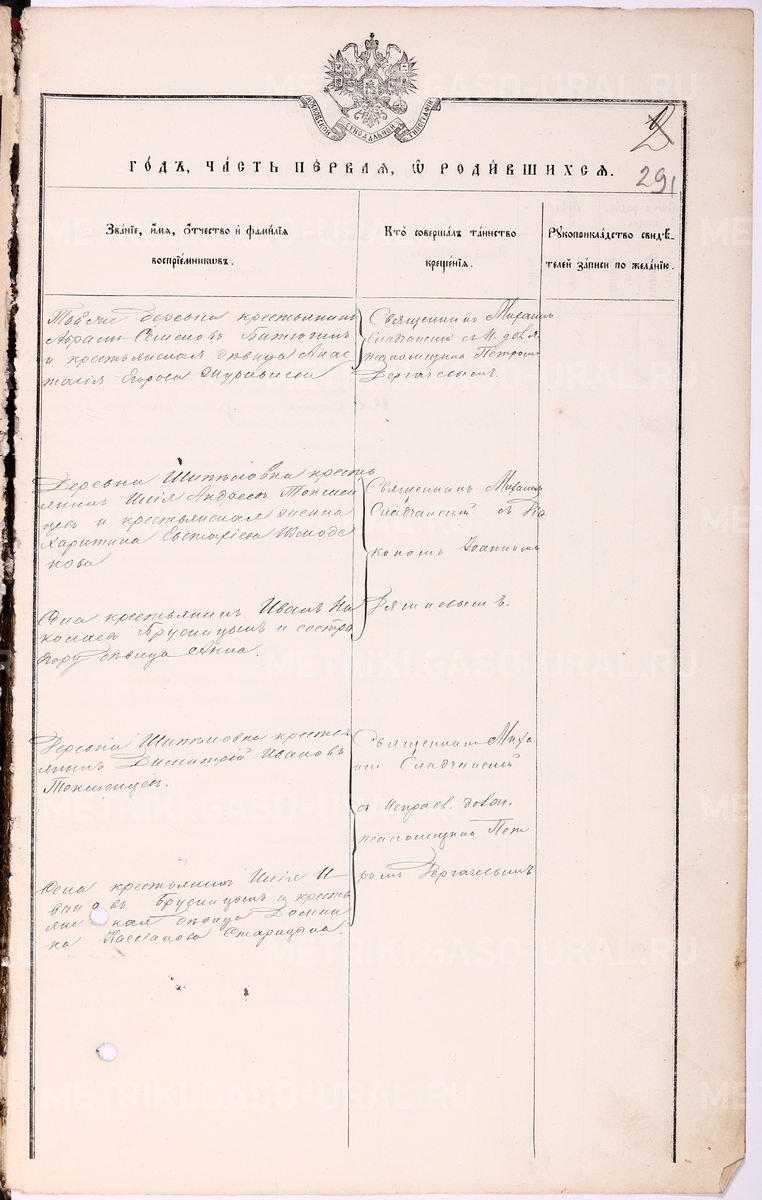 МОСКОВСКОЙ СѴНОДАЛЬНОЙ ТИПОГРАФІИ
2
ГО́ДЪ, ЧА́СТЬ ПЕ́РВАЯ, Ѿ РОДИ́ВШИХСЯ.
291
Зва́нїе, и́мѧ, о́тчество и҆ фами́лїѧ
воспрїе́мникѡвъ.
Кто̀ соверша́лъ та́инство
креще́нїѧ.
Рꙋкоприкла́дство свидѣ́-
телей за́писи по жела́нїю.
Той же деревни крестьянинъ
Абрамъ Семеновъ Битюгинъ
и крестьянская дѣвица Анас
тасія Егорова Журавлева
Священникъ Михаилъ
Сладчанскій съ И. дол.
псаломщика Петромъ
Дергачевымъ.
Деревни Шипѣловки кресть
янинъ Илія Андреевъ Токмен
цевъ и крестьянская жена
Харитина Евстафіева
Священникъ Михаилъ
Сладчанскій съ Діа
кономъ Іоанномъ
Села крестьянинъ Иванъ Ни
колаевъ Брусницынъ и сестра
его дѣвица Анна.
Деревни Шипѣловки кресть
янинъ Димитрій Ивановъ
Токменцевъ.
Священникъ Миха
илъ Сладчанскій
съ Исправ. долж.
псаломщика Пет
ромъ Дергачевымъ
Села крестьянинъ Илія И
вановъ Брусницынъ и кресть
янская дѣвица Домни
ка Кассіанова Старицына.
METRIKI.GASO-URAL.RU